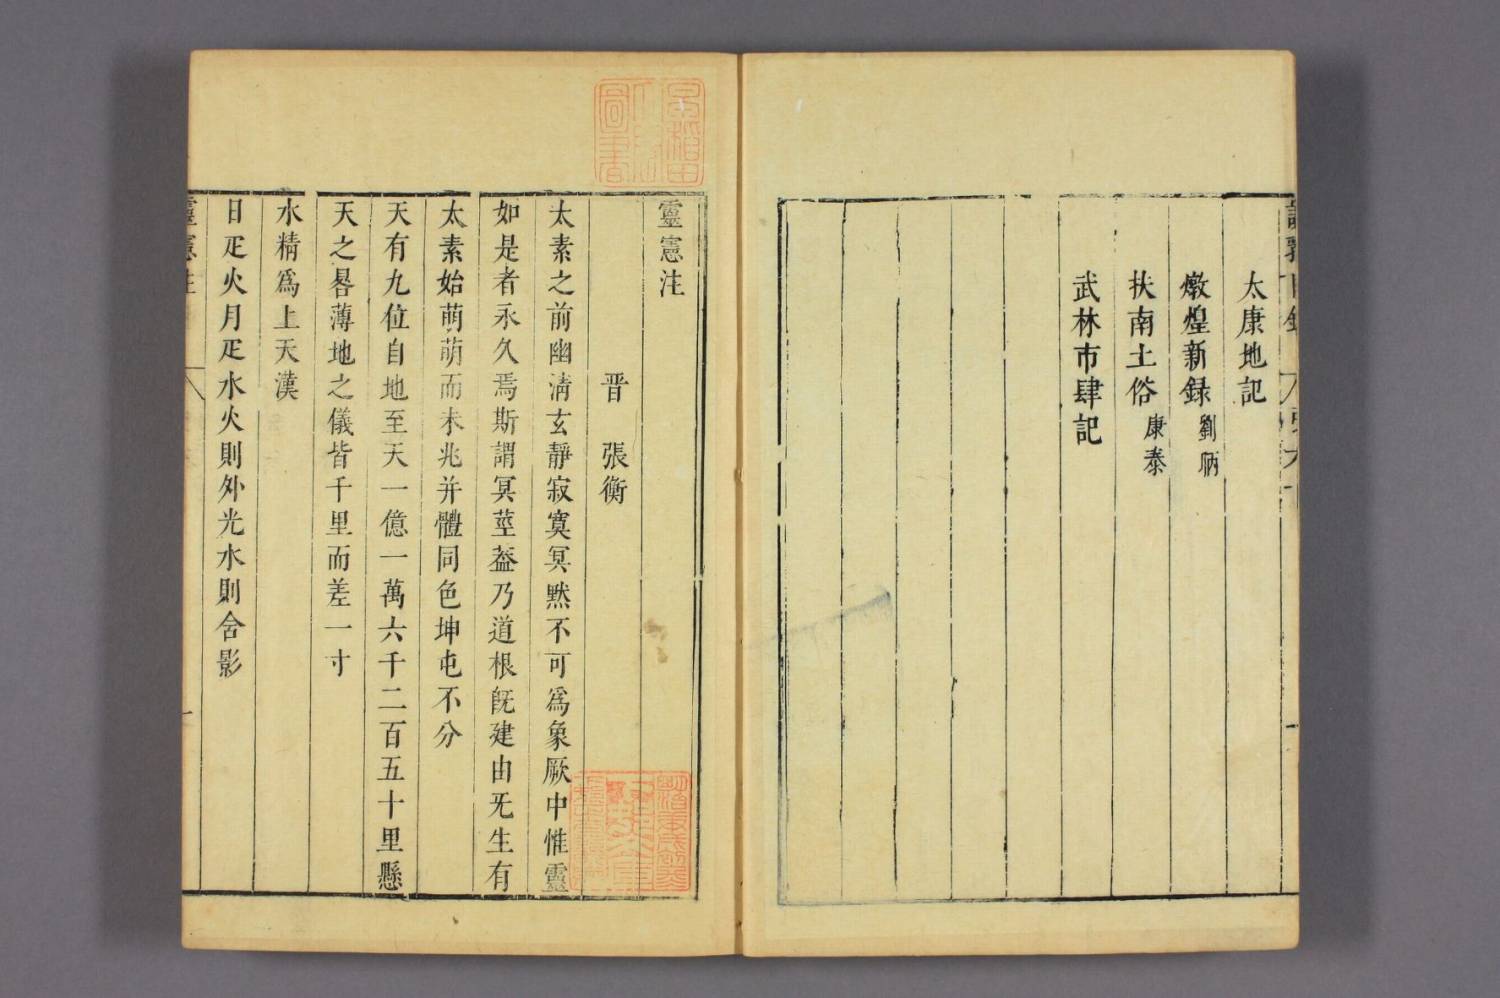 太康地記
燉煌新録 劉昞
扶南土俗 康泰
武林市肆記
靈憲注
晋 張衡
太素之前幽清玄靜寂寞冥黙不可爲象厥中惟靈
如是者永久焉斯謂冥莖葢乃道根旣建由旡生有
太素始萌萌而未兆并體同色坤屯不分
天有九位自地至天一億一萬六千二百五十里懸
天之晷薄地之儀皆千里而差一寸
水精爲上天漢
日疋火月疋水火則外光水則含影
靈憲注